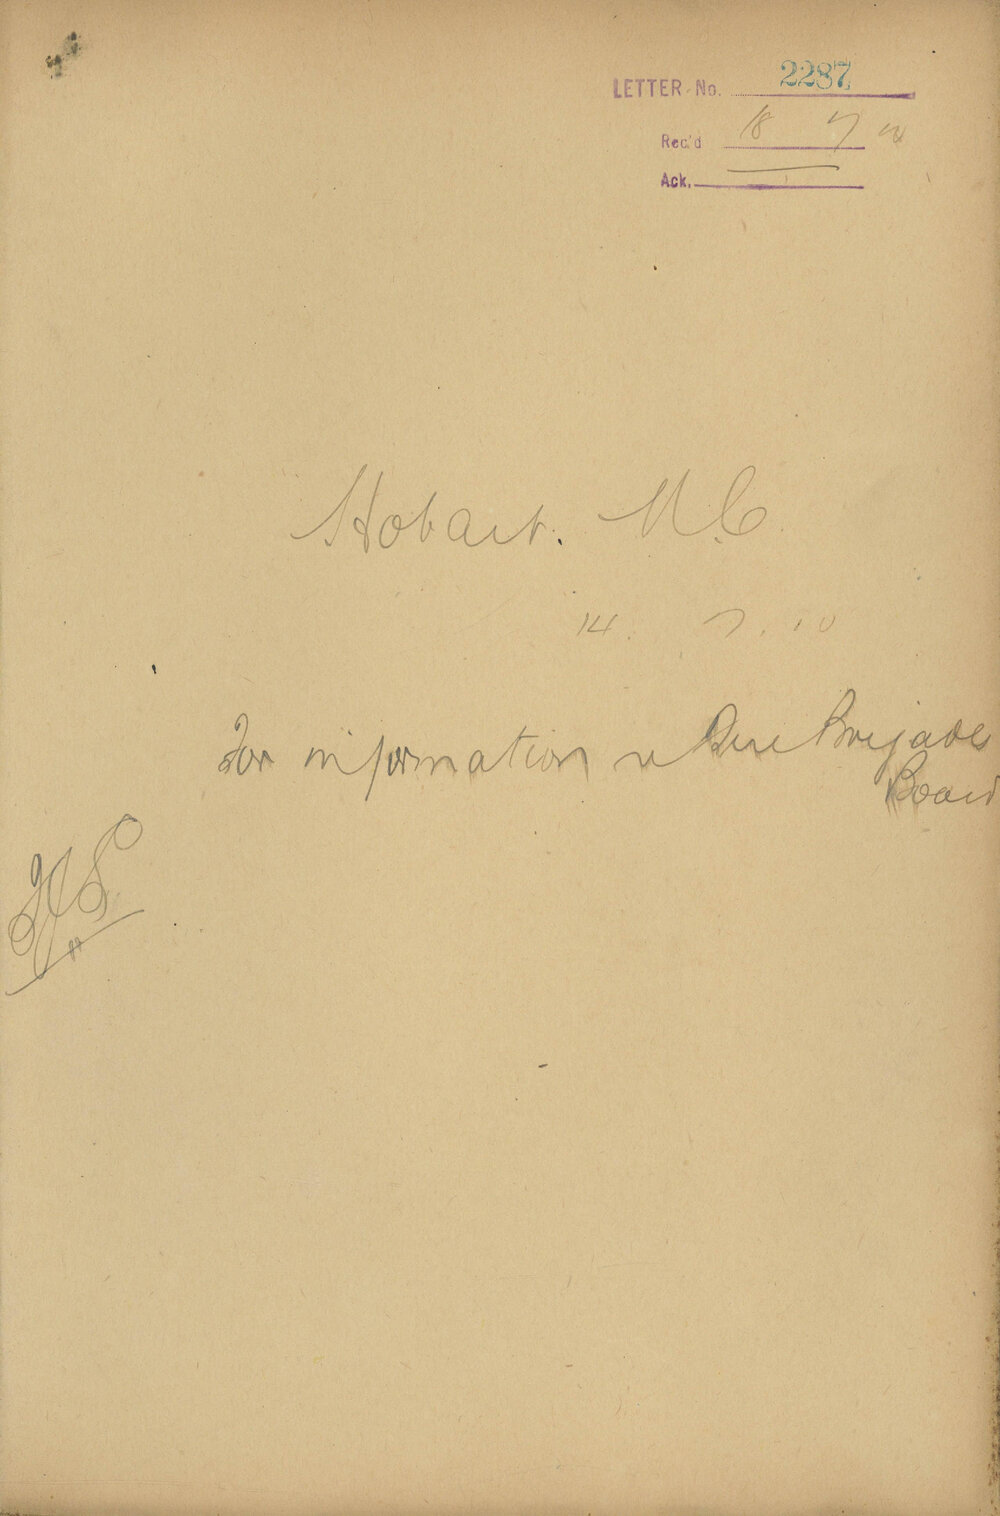 LETTER No. 2287
Rec'd 18 7 10
Ack.
Hobart. M.C.
14. 7. 10
For information re Fire Brigades
Board